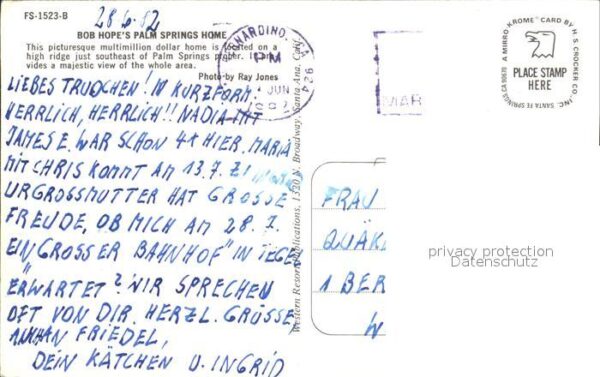 FS-1523-B
28.6.82
BOB HOPE'S PALM SPRINGS HOME
This picturesque multimillion dollar home is located on a
high ridge just southeast of Palm Springs proper. It pro-
vides a majestic view of the whole area.
Photo by Ray Jones
LIEBES TRUDCHEN! IN KURZFORM:
HERRLICH, HERRLICH!! NADIA MIT
JAMES E. WAR SCHON 4X HIER. MARIA
MIT CHRIS KOMMT AM 13.7. ZI
URGROSSMUTTER HAT GROSSE
FREUDE, OB MICH AM 28.7.
EIN GROSSER BAHNHOF" IN TEGEL
"ERWARTET? WIR SPRECHEN
OFT VON DIR. HERZL. GRÜSSE,
FRIEDEL,
DEIN KÄTCHEN U. INGRID
Western Resort Publications, 1330 N. Broadway, Santa Ana, Calif.
NARDINO, CA 924
PM
JUN
MAR
A MIRRO-KROME CARD BY H. S. CROCKER CO., INC. SANTA FE SPRINGS, CA 90670
PLACE STAMP
HERE
FRAU
QUÄK
1 BER
W
privacy protection
Datenschutz